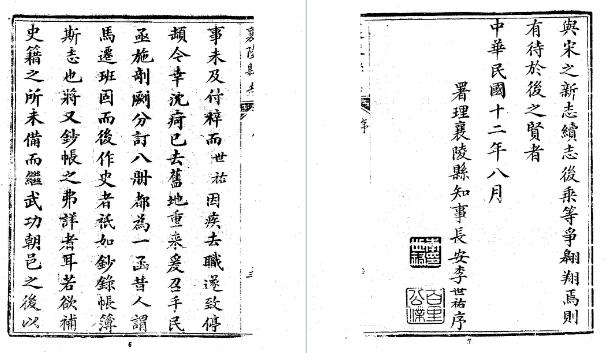 襄陵縣志
事未及付梓而世祐因疾去職遂致停
頓今幸沈疴已去舊地重來爰召手民
亟施剞劂分訂八册都為一函昔人謂
馬遷班固而後作史者祇如鈔錄帳簿
斯志也將又鈔帳之弗詳者耳若欲補
史籍之所未備而繼武功朝邑之後以
6
與宋之新志續志後乘等爭翱翔焉則
有待於後之賢者
中華民國十二年八月
署理襄陵縣知事長安李世祐序
百里公僕
序
7